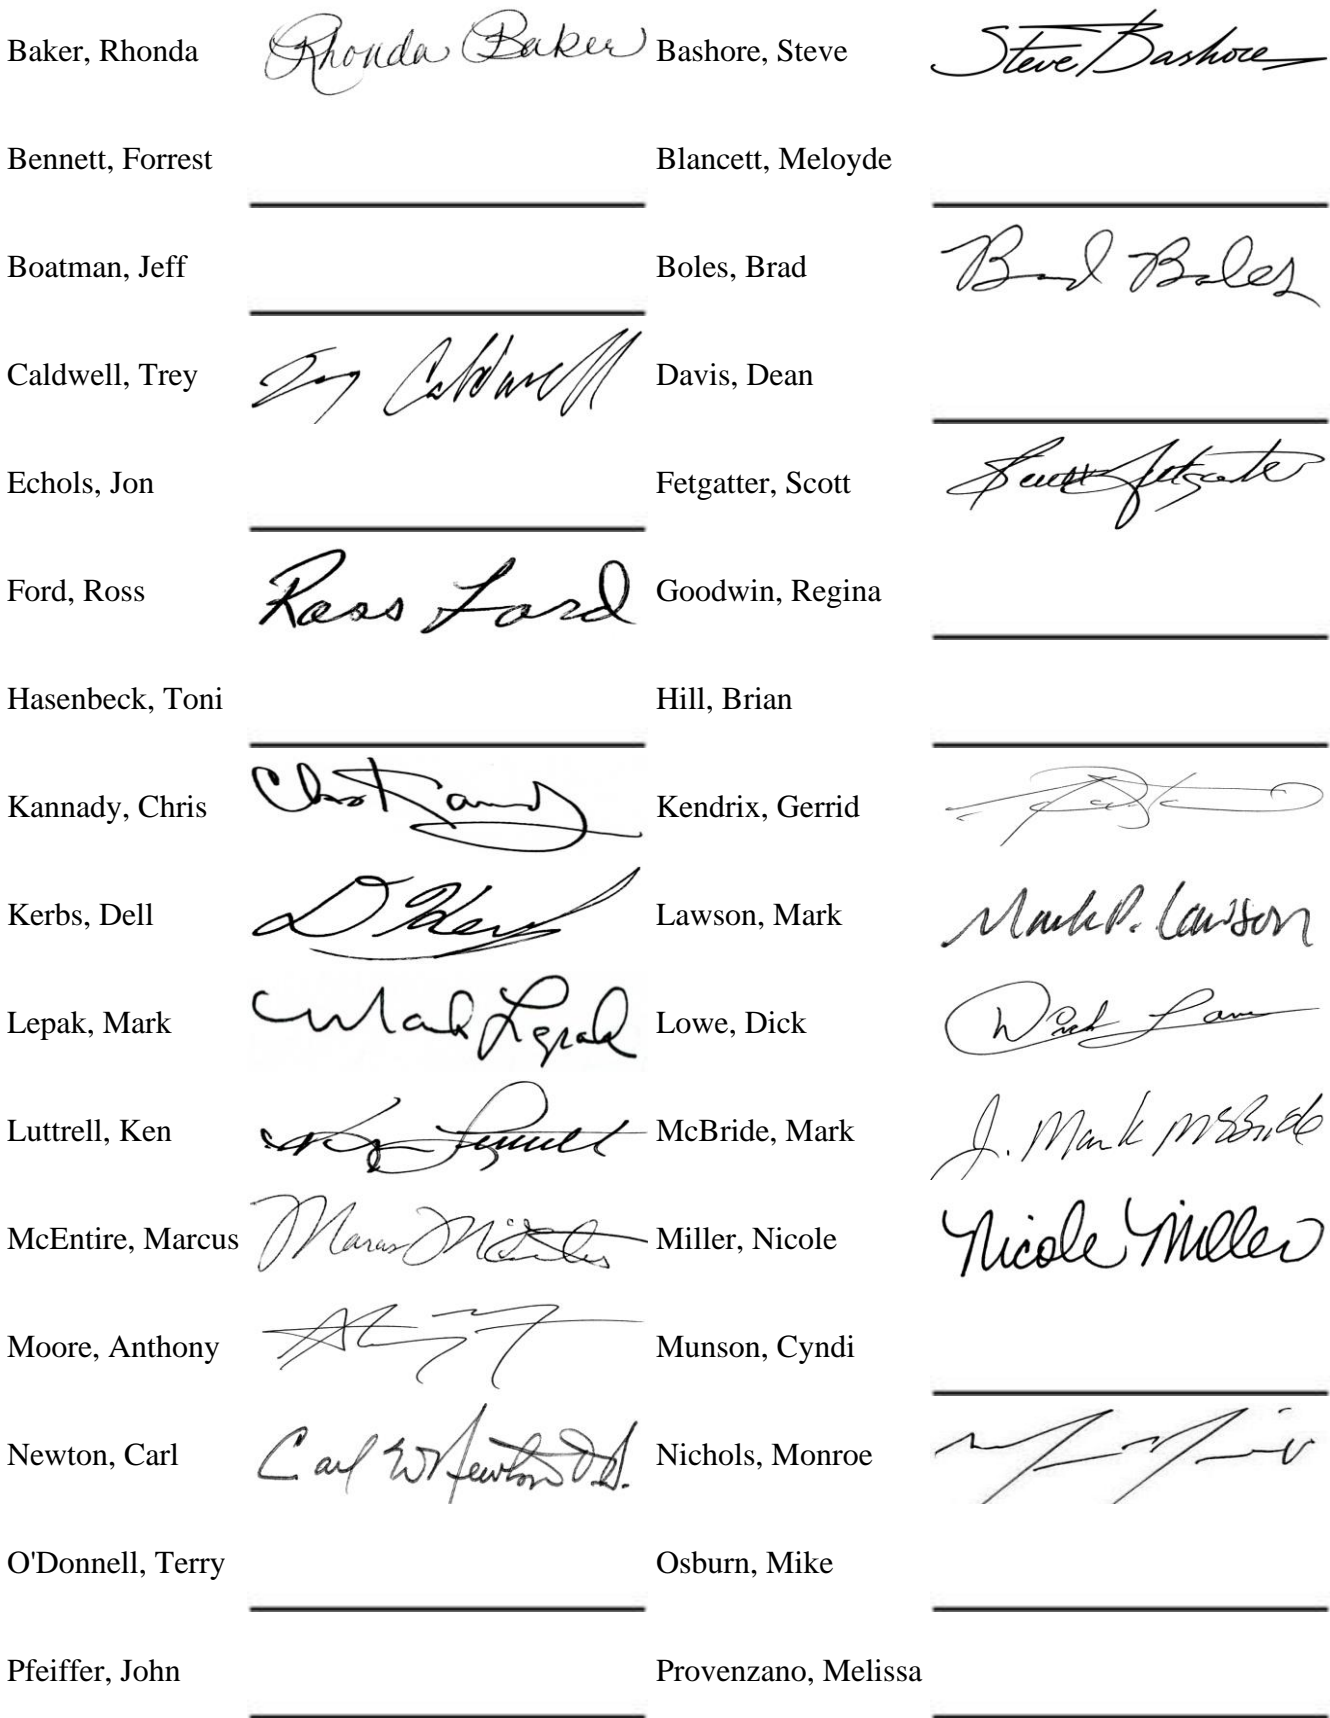 Baker, Rhonda Rhonda Baker Bashore, Steve Steve Bashore
Bennett, Forrest Blancett, Meloyde
Boatman, Jeff Boles, Brad Brad Boles
Caldwell, Trey Trey Caldwell Davis, Dean
Echols, Jon Fetgatter, Scott Scott Fetgatter
Ford, Ross Ross Ford Goodwin, Regina
Hasenbeck, Toni Hill, Brian
Kannady, Chris Chris Kannady Kendrix, Gerrid
Kerbs, Dell D Kerbs Lawson, Mark Mark P. Lawson
Lepak, Mark Mark Lepak Lowe, Dick Dick Lowe
Luttrell, Ken Ken Luttrell McBride, Mark J. Mark McBride
McEntire, Marcus Marcus McEntire Miller, Nicole Nicole Miller
Moore, Anthony Munson, Cyndi
Newton, Carl Carl W Newton D.O. Nichols, Monroe
O'Donnell, Terry Osburn, Mike
Pfeiffer, John Provenzano, Melissa